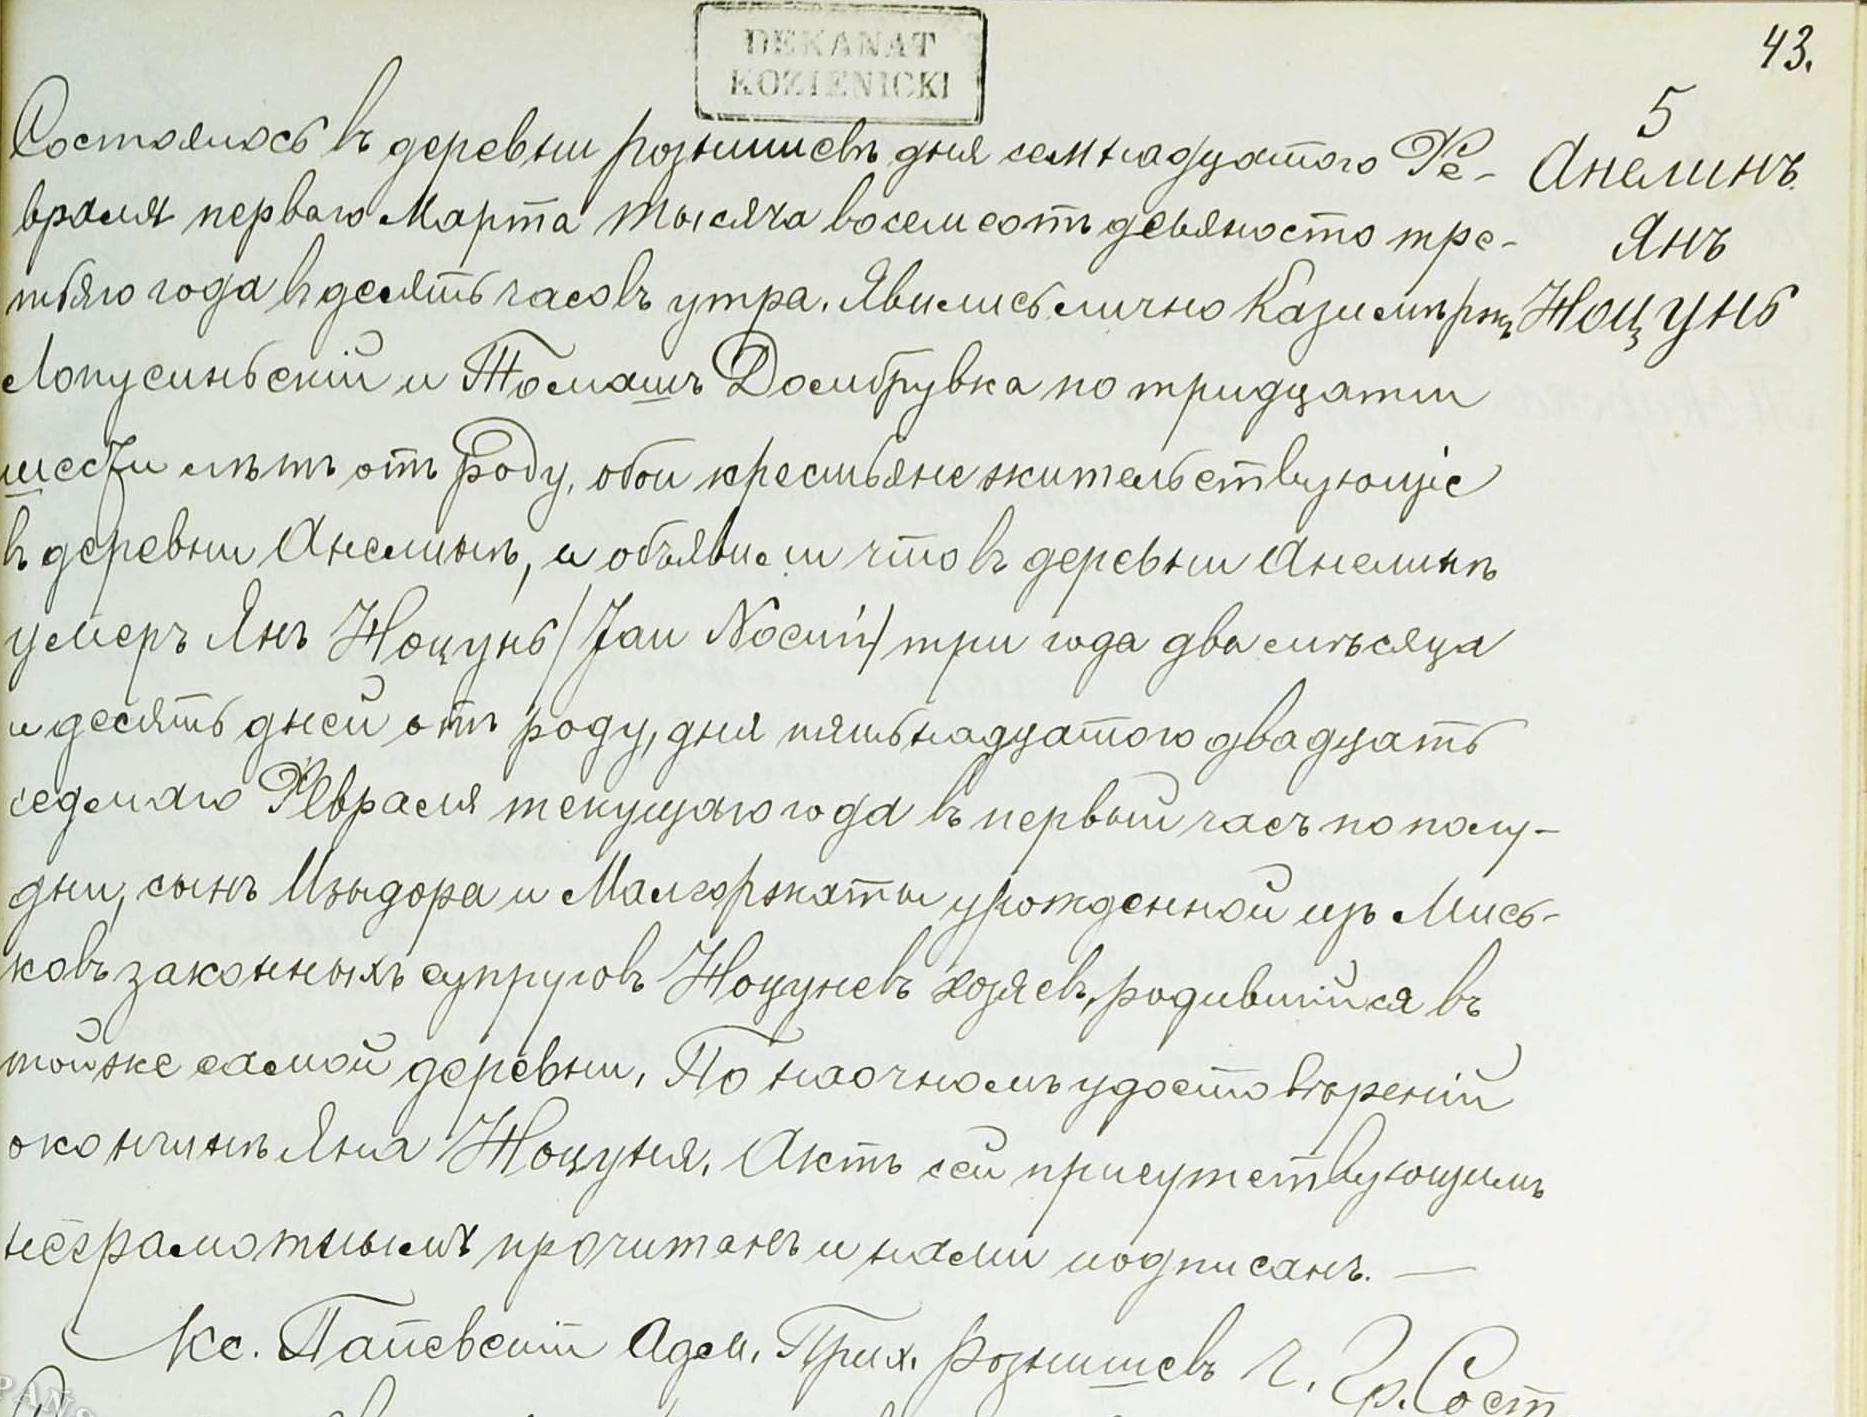 DEKANAT
KOZIENICKI
43.
5
Анелинъ
Янъ
Ноцунь
Состоялось въ деревни Рознишевѣ дня семнадцатого Фе-
враля перваго Марта тысяча восемсотъ девяносто тре-
тьяго года въ десять часовъ утра. Явились лично Казимѣржъ
Лопусиньскій и Томашъ Домбрувка по тридцати
шести лѣтъ отъ роду, обои крестьяне жительствующіе
въ деревни Анелинѣ, и объявили что въ деревни Анелинѣ
умеръ Янъ Ноцунь /Jan Nocuń/ три года два мѣсяца
и десять дней отъ роду, дня пятьнадцатого двадцать
седмаго Февраля текущаго года въ первый часъ по полу-
дни, сынъ Изыдора и Малгоржаты урожденной изъ Мись-
ковъ законныхъ супруговъ Ноцуневъ хозяевъ, родившійся въ
тойже самой деревни. По наочномъ удостовѣреній
о кончинѣ Яна Ноцуня. Актъ сей присутствующимъ
неграмотнымъ прочитанъ и нами подписанъ. —
Кс. Адм. Прих. Рознишевъ Ч. Гр. Сост
PANS